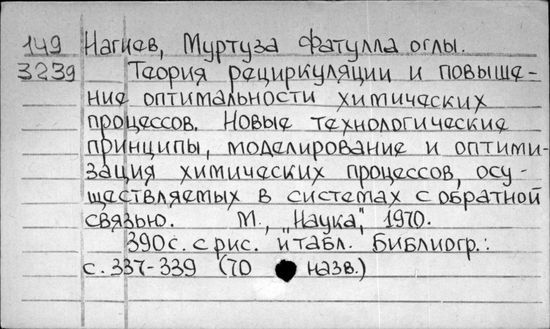 149 Нагиев, Муртуза Фатулла оглы.
3239 Теория рециркуляции и повыше-
ние оптимальности химических
процессов. Новые технологические
принципы, моделирование и оптими-
зация химических процессов, осу-
ществляемых в системах с обратной
связью. М., „Наука", 1970.
390 с. с рис. и табл. Библиогр.:
с. 337-339 (70 назв.)